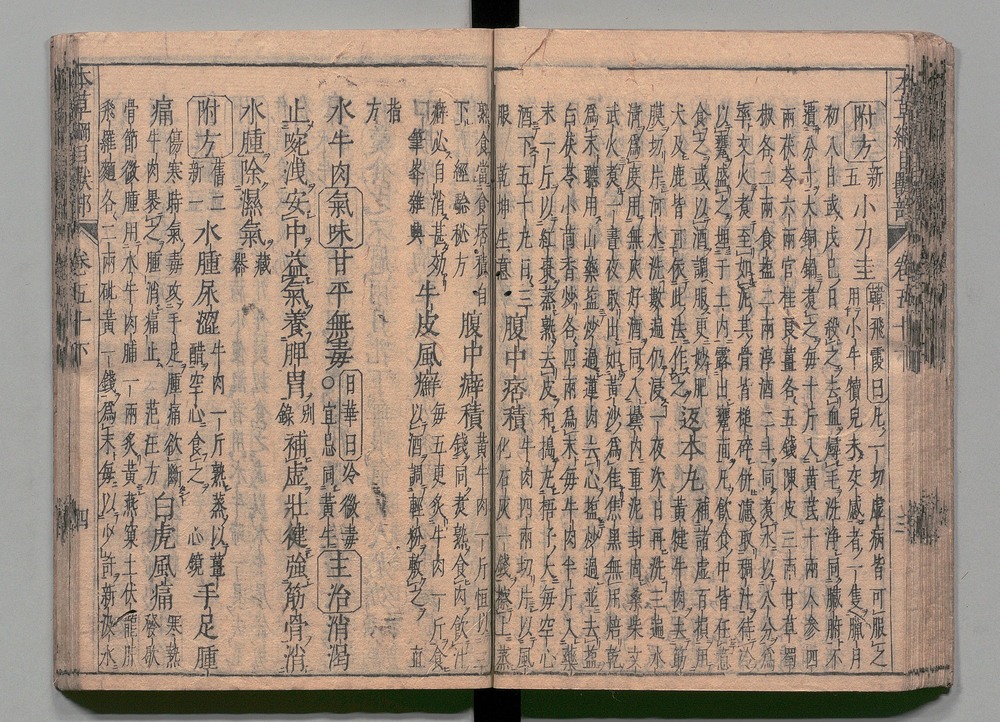 本草綱目獸部 卷五十下 三
附方 新五 小刀圭 韓飛霞曰凡一切虛病皆可服之
用小牛犢兒未交感者一隻臘月
初八日或戊己日殺之去血燖毛洗淨同臟腑不
遺分寸大銅鍋煮之每十斤入黃芪十兩人參四
兩茯苓六兩官桂良薑各五錢陳皮三兩甘草蜀
椒各二兩食鹽二兩淳酒二斗同煮水以八分爲
率文火煮至如泥其骨皆槌碎併濾取稠汁待冷
以甕盛之埋于土內露出甕面凡飲食中皆任意
食之或以酒調服更妙肥
犬及鹿皆可依此法作之 返本丸 補諸虛百損用
黃犍牛肉去筋
膜切片河水洗數遍仍浸一夜次日再洗三遍水
清爲度用無灰好酒同入罈內重泥封固桑柴文
武火煮一晝夜取出如黃沙爲佳焦黑無用焙乾
爲末聽用山藥鹽炒過蓮肉去心鹽炒過並去鹽
白茯苓小茴香炒各四兩爲末每牛肉半斤入藥
末一斤以紅棗蒸熟去皮和搗丸梧子大每空心
酒下五十丸日三
服 乾坤生意 腹中痞積 牛肉四兩切片以風
化石灰一錢擦上蒸
熟食常食痞積自
下 經驗秘方 腹中癖積 黃牛肉一斤恒山三
錢同煮熟食肉飲汁
癖必自消甚效
筆峯雜興 牛皮風癬 每五更炙牛肉一斤食
以酒調輕粉傅之 直
指
方
水牛肉 氣味 甘平無毒 ○日華曰冷微毒
宜忌同黃牛 主治 消渴
止啘洩安中益氣養脾胃 別錄 補虛壯健強筋骨消
水腫除濕氣 藏器
附方 舊二新一 水腫尿澀 牛肉一斤熟蒸以薑
醋空心食之 心鏡 手足腫
痛 傷寒時氣毒攻手足腫痛欲斷
牛肉裹之腫消痛止 范汪方 白虎風痛 寒熱發歇
骨節微腫用水牛肉脯一兩炙黃燕窠土伏龍肝
飛羅麵各二兩砒黃一錢爲末每以少許新汲水
本草綱目獸部 卷五十下 四